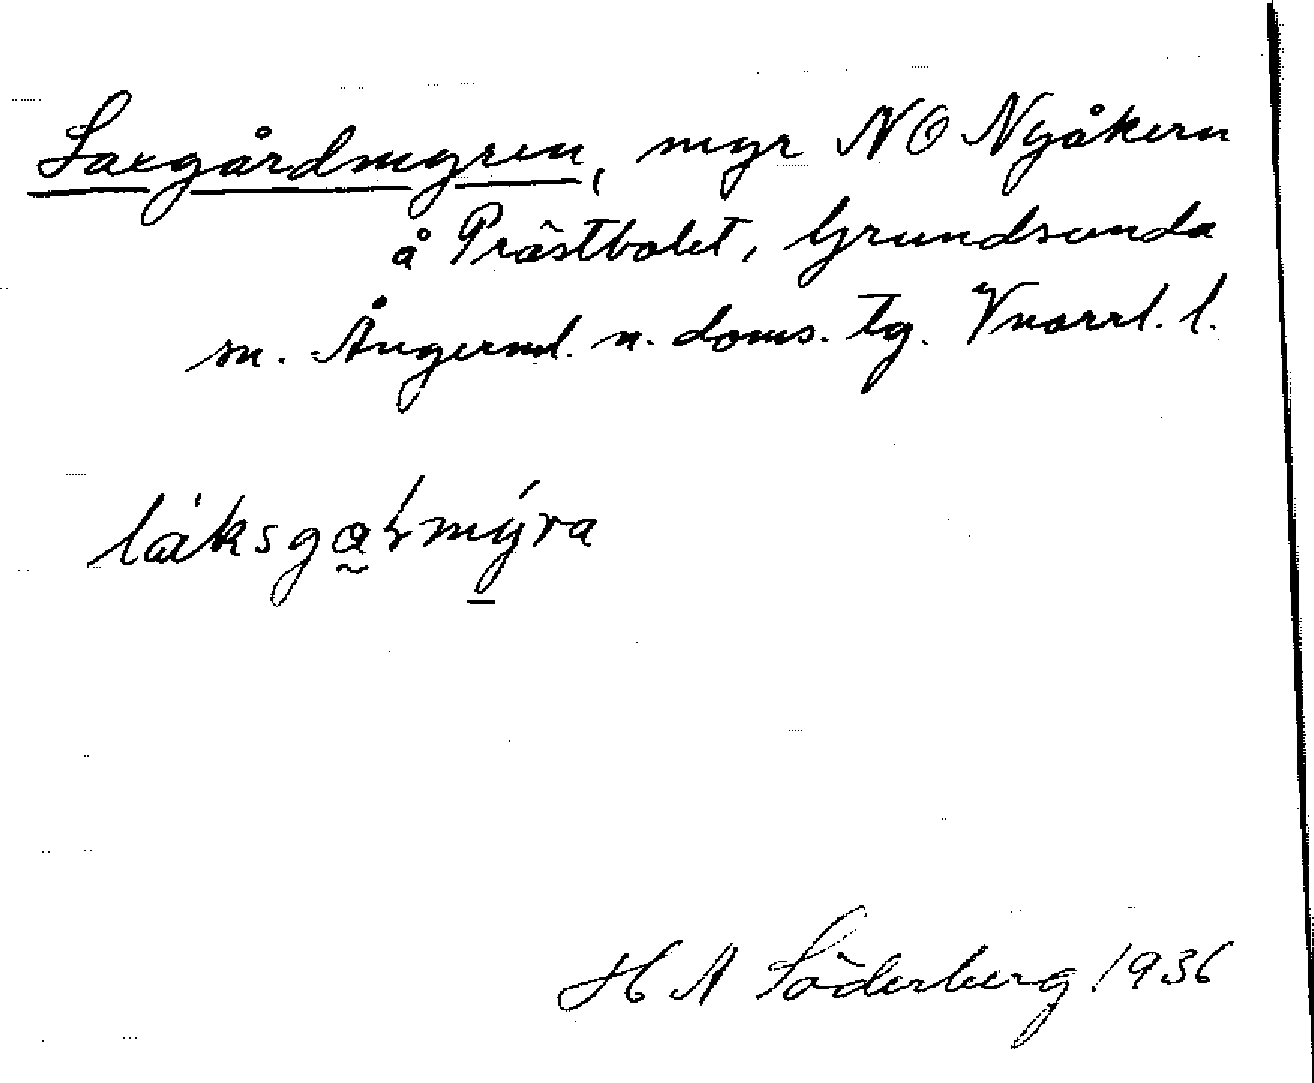 Laxgårdmyren, myr NO Nyåkern
å Prästbolet, Grundsunda
sn. Ångerml. n. doms. tg. Vnorrl. l.
H A Söderberg 1936